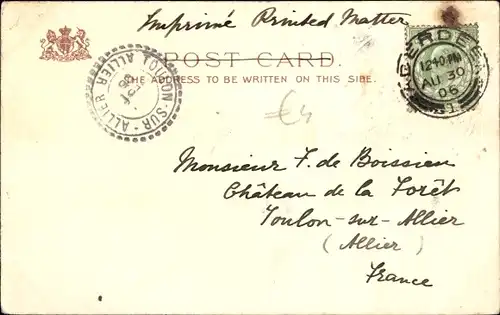 Imprimé Printed Matter
POST CARD.
THE ADDRESS TO BE WRITTEN ON THIS SIDE.
TOULON-SUR-ALLIER
ALLIER
ABERDEEN
12 40 PM
AU 30
06
1
€4
Monsieur F. de Boissieu
Château de la Forêt
Toulon-sur-Allier
(Allier)
France